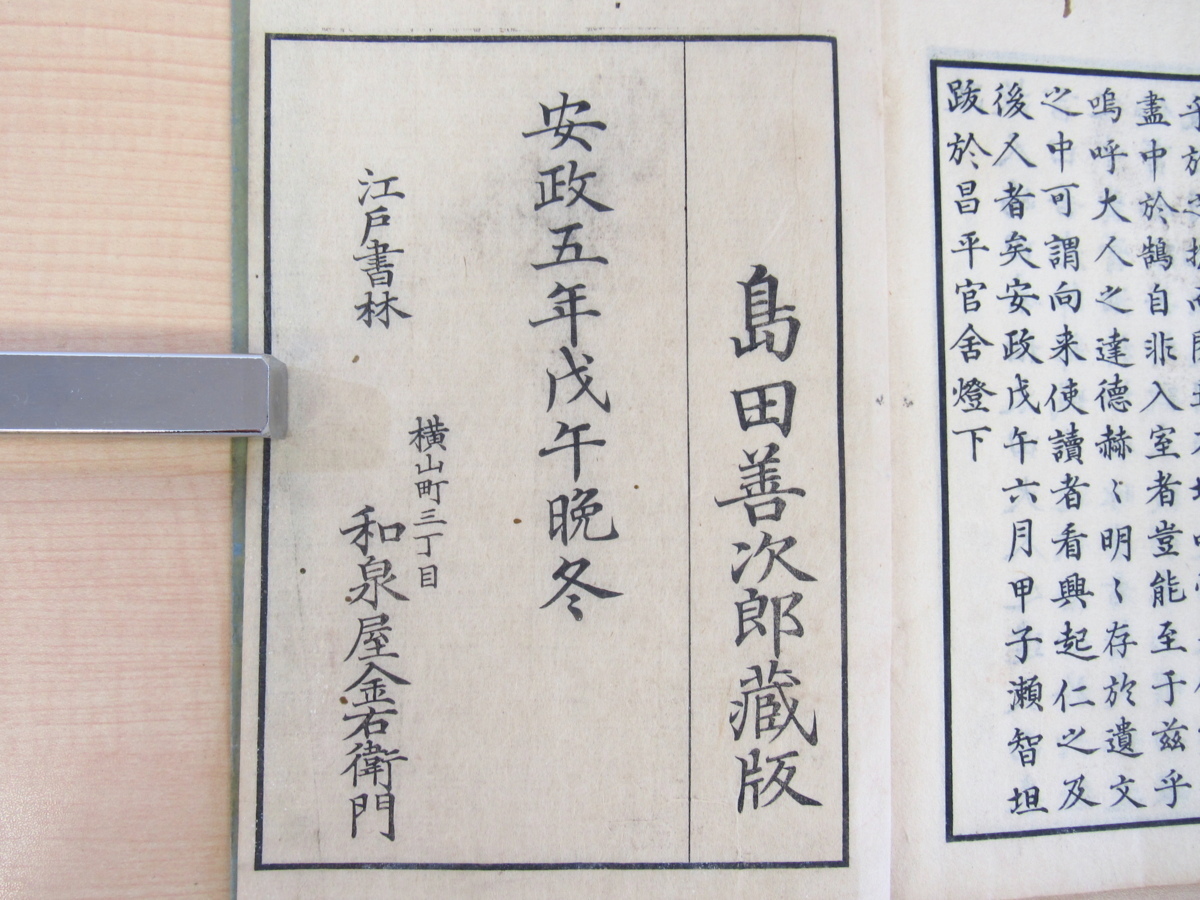 盡中於鵠自非入室者豈能至于茲乎
嗚呼大人之達德赫〻明〻存於遺文
之中可謂向来使讀者看興起仁之及
後人者矣安政戊午六月甲子瀬智坦
跋於昌平官舍燈下
島田善次郎藏版
安政五年戊午晩冬
江戸書林
横山町三丁目
和泉屋金右衛門